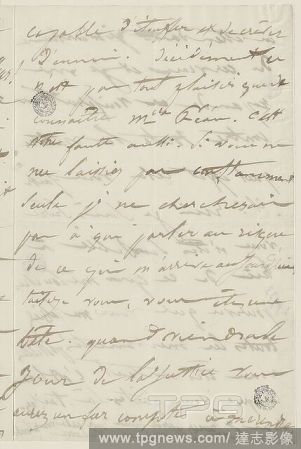 capable d'étouffer et de crever
D'ennui. Décidément ce
n'est pas tout plaisir que de
connaître Mme Péan. C'est
votre faute aussi. Si vous ne
me laissiez pas constamment
seule je ne chercherais
pas à qui parler au risque
de ce qui m'arrive aujourd'hui
taisez vous, vous êtes une
bête. quand viendra le
Jour de la justice vous
aurez un fier compte à me
TPG
www.tpgnews.com/達志影像